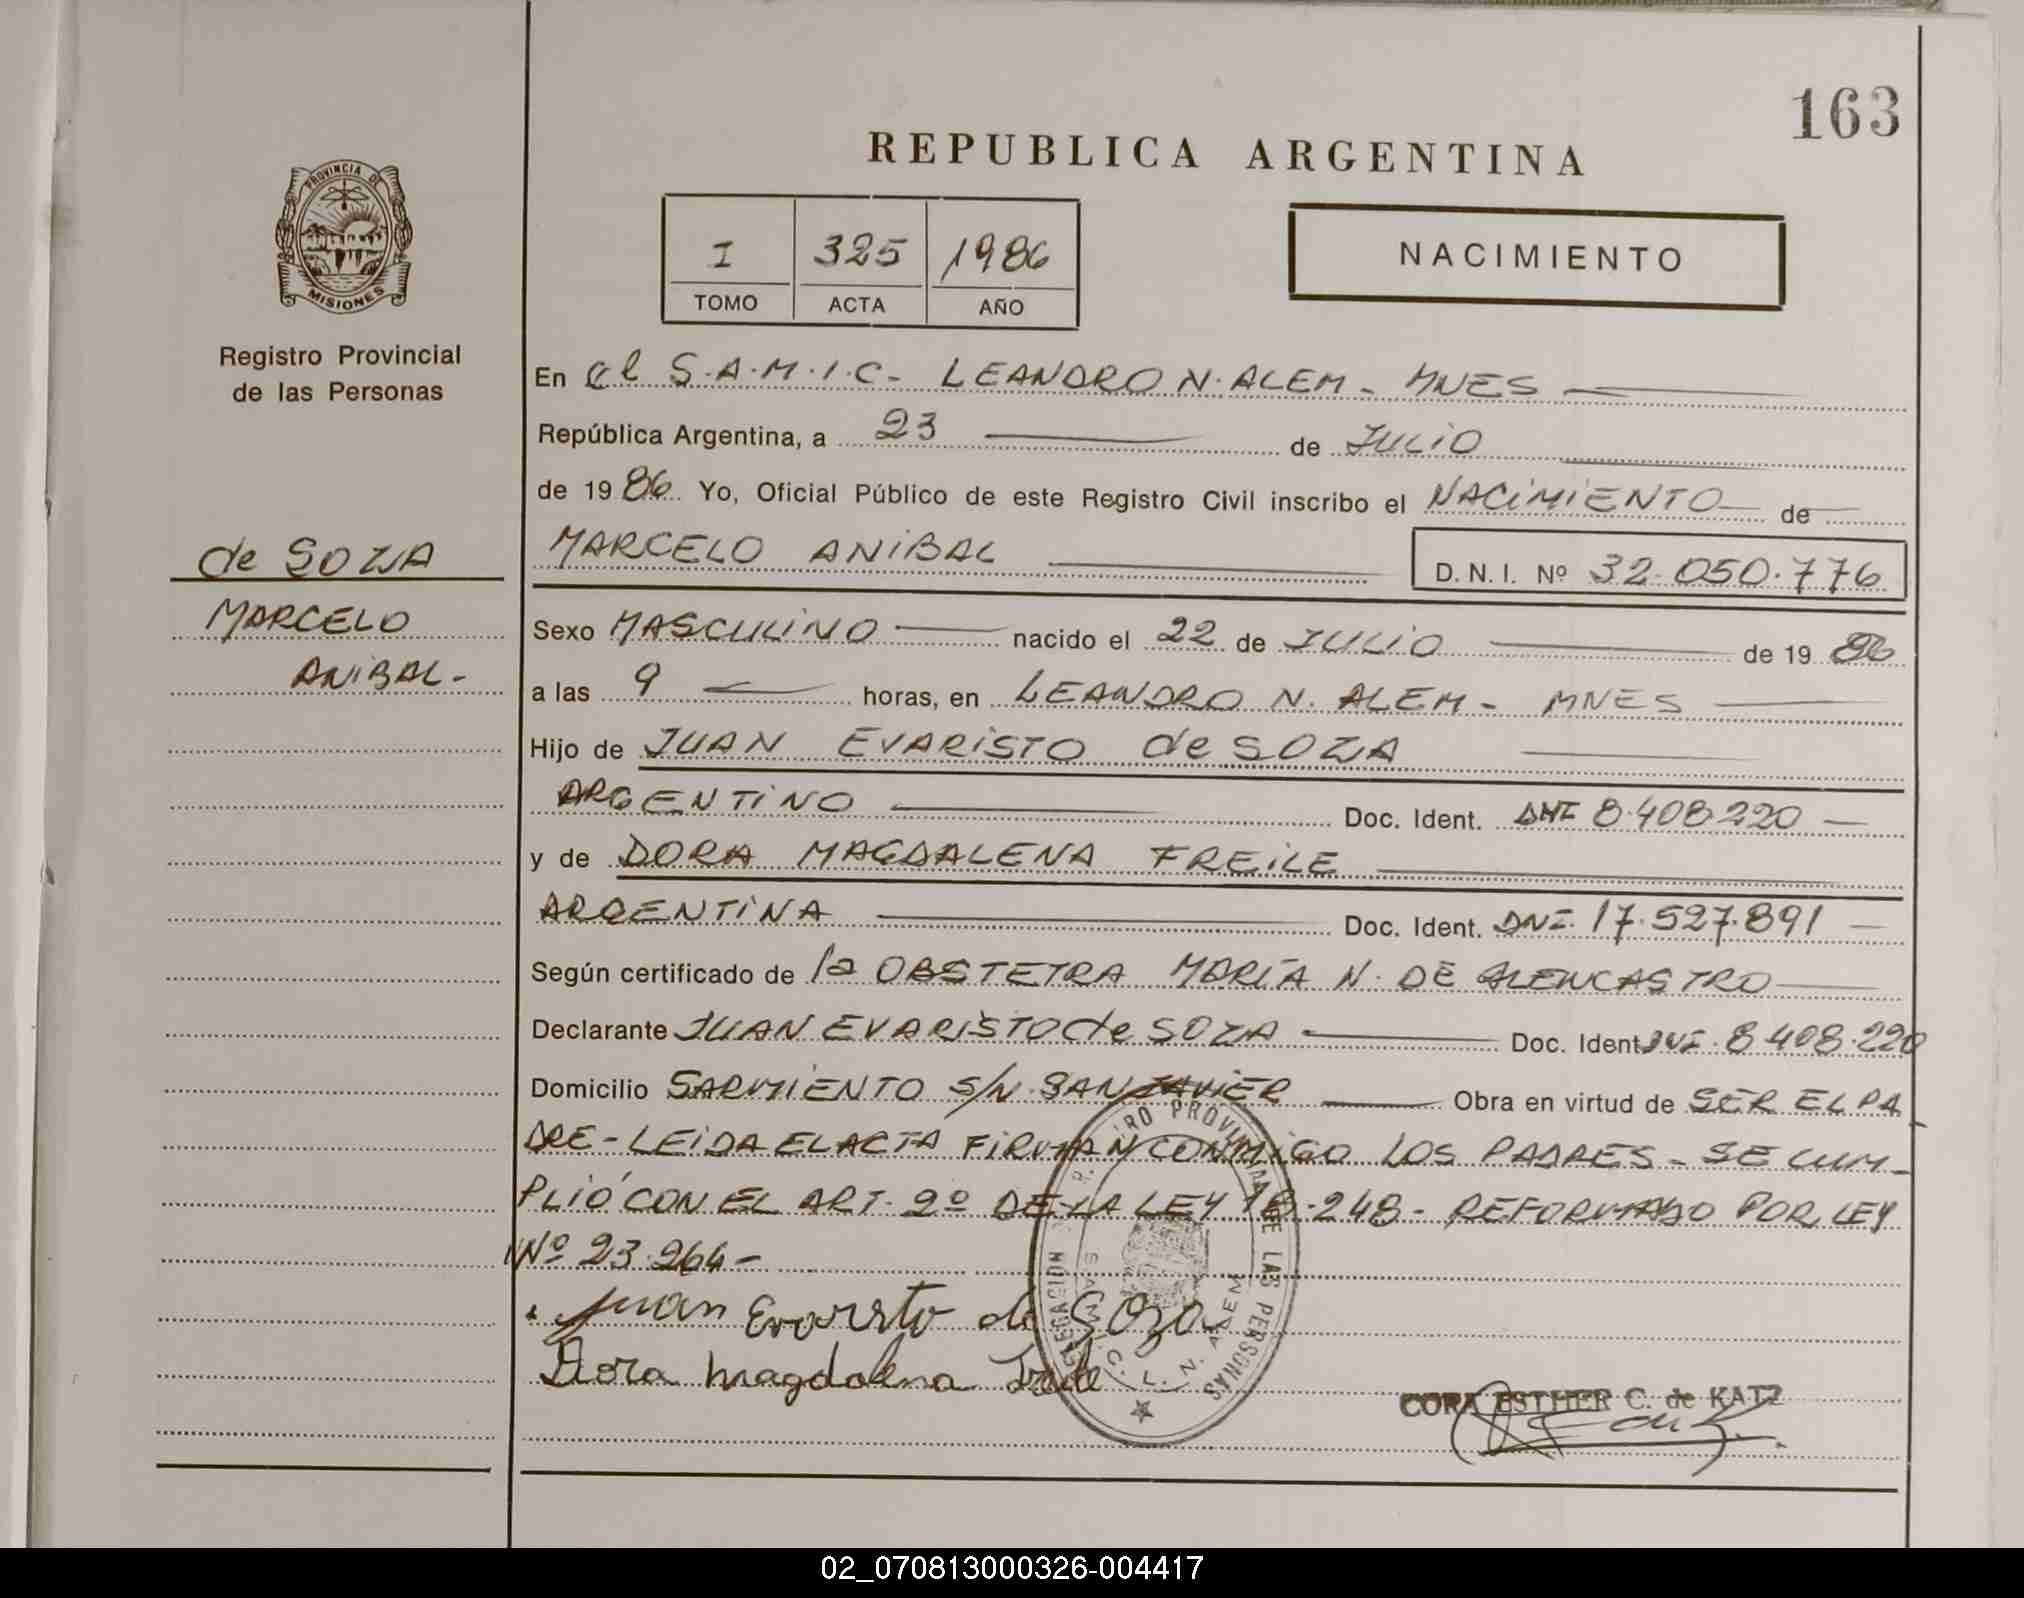 163
REPUBLICA ARGENTINA
PROVINCIA DE
MISIONES
I 325 1986
TOMO ACTA AÑO
NACIMIENTO
Registro Provincial
de las Personas
En el S.A.M.I.C- LEANDRO N. ALEM - MNES
República Argentina, a 23 de JULIO
de 1986 Yo, Oficial Público de este Registro Civil inscribo el NACIMIENTO de
MARCELO ANIBAL D.N.I. Nº 32.050.776
de SOZA
MARCELO
ANIBAL-
Sexo MASCULINO nacido el 22 de JULIO de 1986
a las 9 horas, en LEANDRO N. ALEM - MNES
Hijo de JUAN EVARISTO de SOZA
ARGENTINO Doc. Ident. DNI 8.408.220
y de DORA MAGDALENA FREILE
ARGENTINA Doc. Ident. DNI. 17.527.891
Según certificado de la OBSTETRA MARÍA N. DE ALENCASTRO
Declarante JUAN EVARISTO de SOZA Doc. Ident. DNI. 8.408.220
Domicilio SARMIENTO S/N SAN JAVIER Obra en virtud de SER EL PA
DRE - LEIDA EL ACTA FIRMAN CONMIGO LOS PADRES - SE CUM-
PLIÓ CON EL ART. 2º DE LA LEY 18.248 - REFORMADO POR LEY
Nº 23.264-
Juan Evaristo de Soza
Dora Magdalena Freile
CORA ESTHER C. de KATZ
PROVINCIAL DE LAS PERSONAS
S.A.M.I.C. L. N. ALEM
02_070813000326-004417